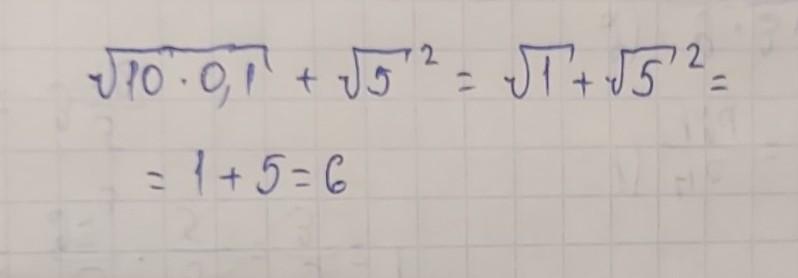 √10·0,1 + √5² = √1 + √5² =
= 1 + 5 = 6